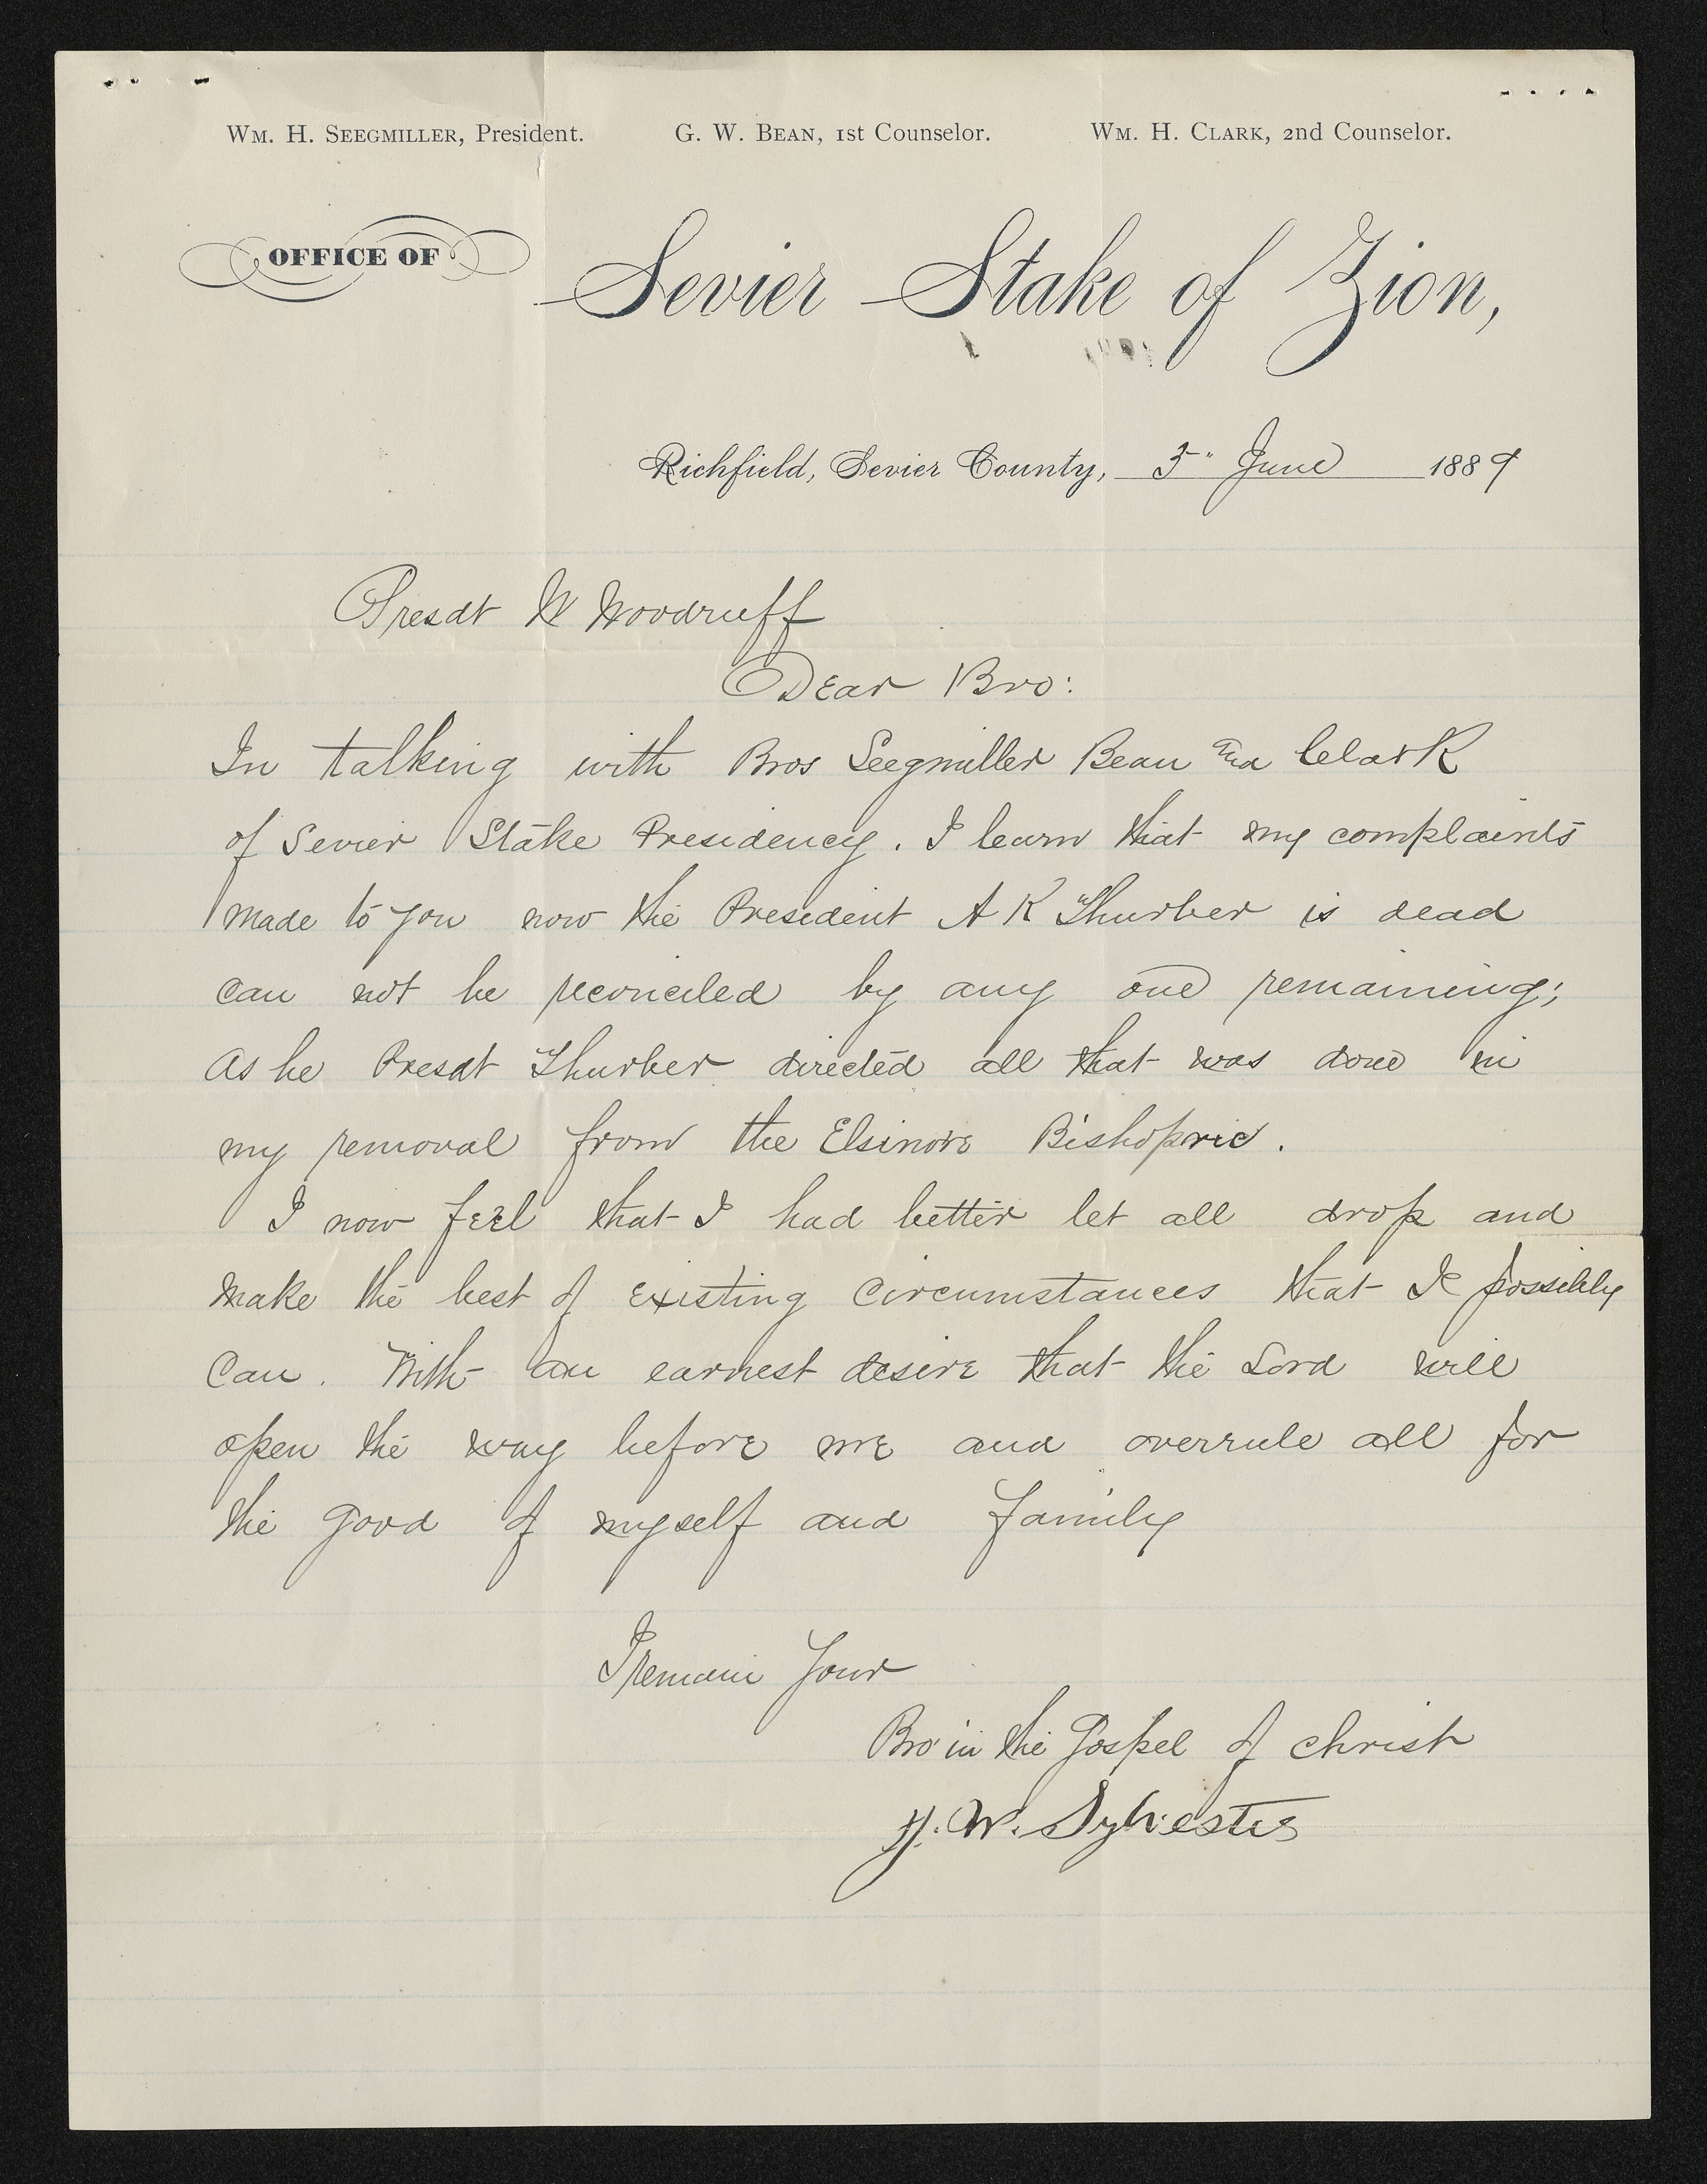 WM. H. SEEGMILLER, President. G. W. BEAN, 1st Counselor. WM. H. CLARK, 2nd Counselor.
OFFICE OF Sevier Stake of Zion,
Richfield, Sevier County, 3" June 1889
Presdt W Woodruff
Dear Bro:
In talking with Bros Seegmiller Bean and Clark
of Sevier Stake Presidency. I learn that my complaints
made to you now the President A K Thurber is dead
can not be reconciled by any one remaining;
As he Presdt Thurber directed all that was done in
my removal from the Elsinore Bishopric.
I now feel that I had better let all drop and
make the best of existing circumstances that I possibly
can. With an earnest desire that the Lord will
open the way before me and overrule all for
the good of myself and family
I remain Your
Bro in the Gospel of Christ
J. W. Sylvester